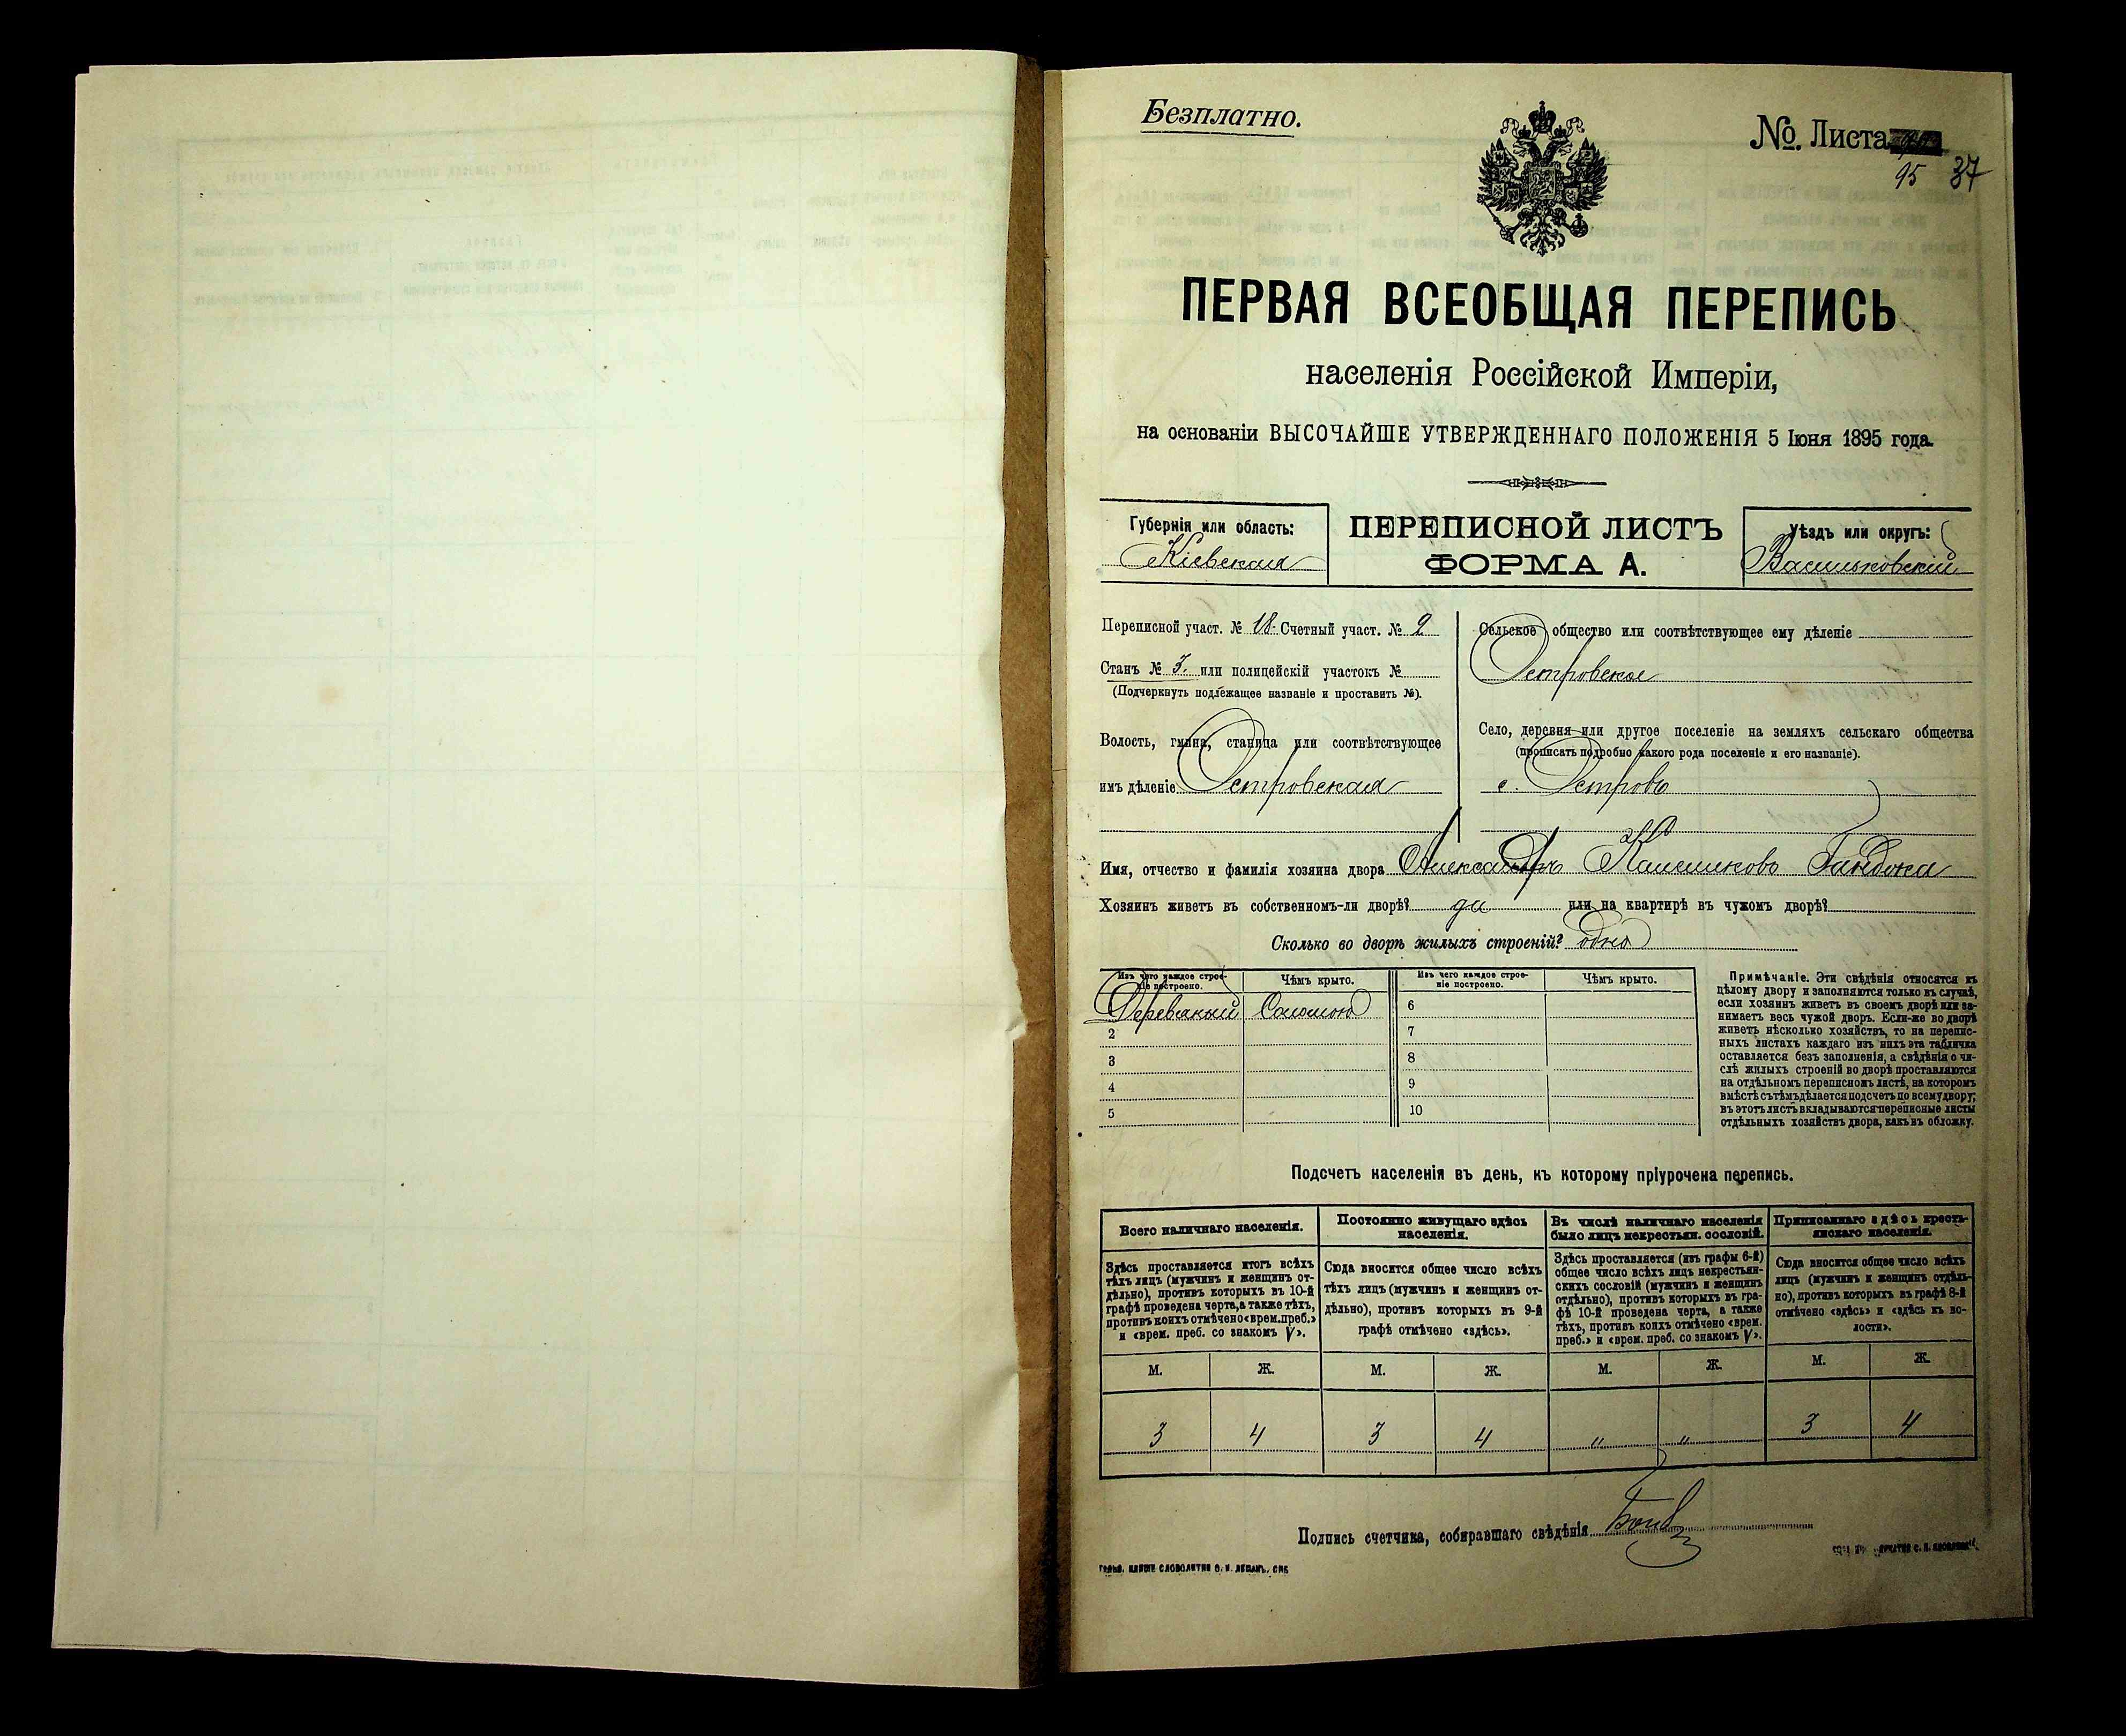 Безплатно.
№. Листа
95 37
ПЕРВАЯ ВСЕОБЩАЯ ПЕРЕПИСЬ
населенія Россійской Имперіи,
на основаніи ВЫСОЧАЙШЕ УТВЕРЖДЕННАГО ПОЛОЖЕНІЯ 5 Іюня 1895 года.
Губернія или область:
Кіевская
ПЕРЕПИСНОЙ ЛИСТЪ
ФОРМА А.
Уѣздъ или округъ:
Васильковскій
Переписной участ. № 18. Счетный участ. № 2
Станъ № 3. или полицейскій участокъ №
(Подчеркнуть подлежащее названіе и проставить №).
Волость, гмина, станица или соотвѣтствующее
имъ дѣленіе Островская
Сельское общество или соотвѣтствующее ему дѣленіе
Островское
Село, деревня или другое поселеніе на земляхъ сельскаго общества
(прописать подробно какого рода поселеніе и его названіе).
с. Островъ
Имя, отчество и фамилія хозяина двора Александръ
Хозяинъ живетъ въ собственномъ-ли дворѣ? да или на квартирѣ въ чужомъ дворѣ?
Сколько во дворѣ жилыхъ строеній? одно
Изъ чего каждое строеніе построено. Чѣмъ крыто. Изъ чего каждое строеніе построено. Чѣмъ крыто.
Деревяный Соломою 6
2 7
3 8
4 9
5 10
Примѣчаніе. Эти свѣдѣнія относятся къ
цѣлому двору и заполняются только въ случаѣ,
если хозяинъ живетъ въ своемъ дворѣ или за-
нимаетъ весь чужой дворъ. Если-же во дворѣ
живетъ нѣсколько хозяйствъ, то на перепис-
ныхъ листахъ каждаго изъ нихъ эта табличка
оставляется безъ заполненія, а свѣдѣнія о чи-
слѣ жилыхъ строеній во дворѣ проставляются
на отдѣльномъ переписномъ листѣ, на которомъ
вмѣстѣ съ тѣмъ дѣлается подсчетъ по всему двору;
въ этотъ листъ вкладываются переписные листы
отдѣльныхъ хозяйствъ двора, какъ въ обложку.
Подсчетъ населенія въ день, къ которому пріурочена перепись.
Всего наличнаго населенія.
Здѣсь проставляется итогъ всѣхъ
тѣхъ лицъ (мужчинъ и женщинъ от-
дѣльно), противъ которыхъ въ 10-й
графѣ проведена черта, а также тѣхъ,
противъ коихъ отмѣчено «врем. преб.»
и «врем. преб. со знакомъ V».
Постоянно живущаго здѣсь
населенія.
Сюда вносится общее число всѣхъ
тѣхъ лицъ (мужчинъ и женщинъ от-
дѣльно), противъ которыхъ въ 9-й
графѣ отмѣчено «здѣсь».
Въ числѣ наличнаго населенія
было лицъ некрестьян. сословій.
Здѣсь проставляется (изъ графы 6-й)
общее число всѣхъ лицъ некрестьян-
скихъ сословій (мужчинъ и женщинъ
отдѣльно), противъ которыхъ въ гра-
фѣ 10-й проведена черта, а также
тѣхъ, противъ коихъ отмѣчено «врем.
преб.» и «врем. преб. со знакомъ V».
Приписаннаго здѣсь кресть-
янскаго населенія.
Сюда вносится общее число всѣхъ
лицъ (мужчинъ и женщинъ отдѣль-
но), противъ которыхъ въ графѣ 8-й
отмѣчено «здѣсь» и «здѣсь къ во-
лости».
М. Ж. М. Ж. М. Ж. М. Ж.
3 4 3 4 " " 3 4
Подпись счетчика, собиравшаго свѣдѣнія